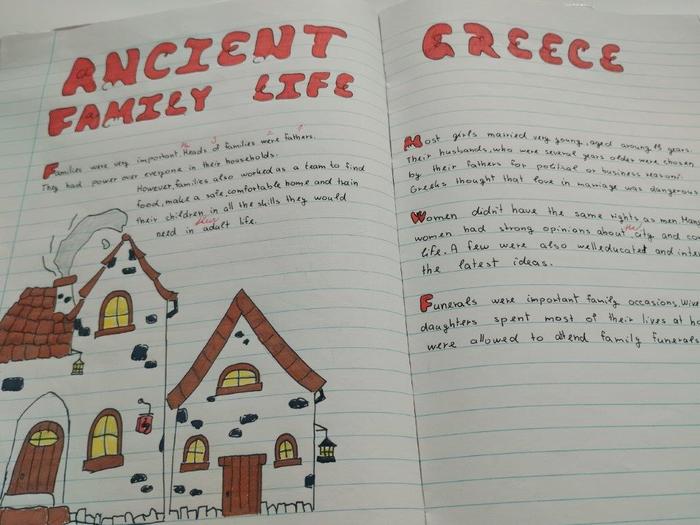 ANCIENT GREECE
FAMILY LIFE
Families were very important. Heads of families were fathers.
They had power over everyone in their households.
However, families also worked as a team to find
food, make a safe, comfortable home and train
their children in all the skills they would
need in adult life.
Most girls married very young, aged around 15 years.
Their husbands, who were several years older were chosen
by their fathers for political or business reasons.
Greeks thought that love in marriage was dangerous
Women didn't have the same rights as men. Many
women had strong opinions about the city and
life. A few were also welleducated and
the latest ideas.
Funerals were important family occasions.
daughters spent most of their lives at
were allowed to attend family funerals